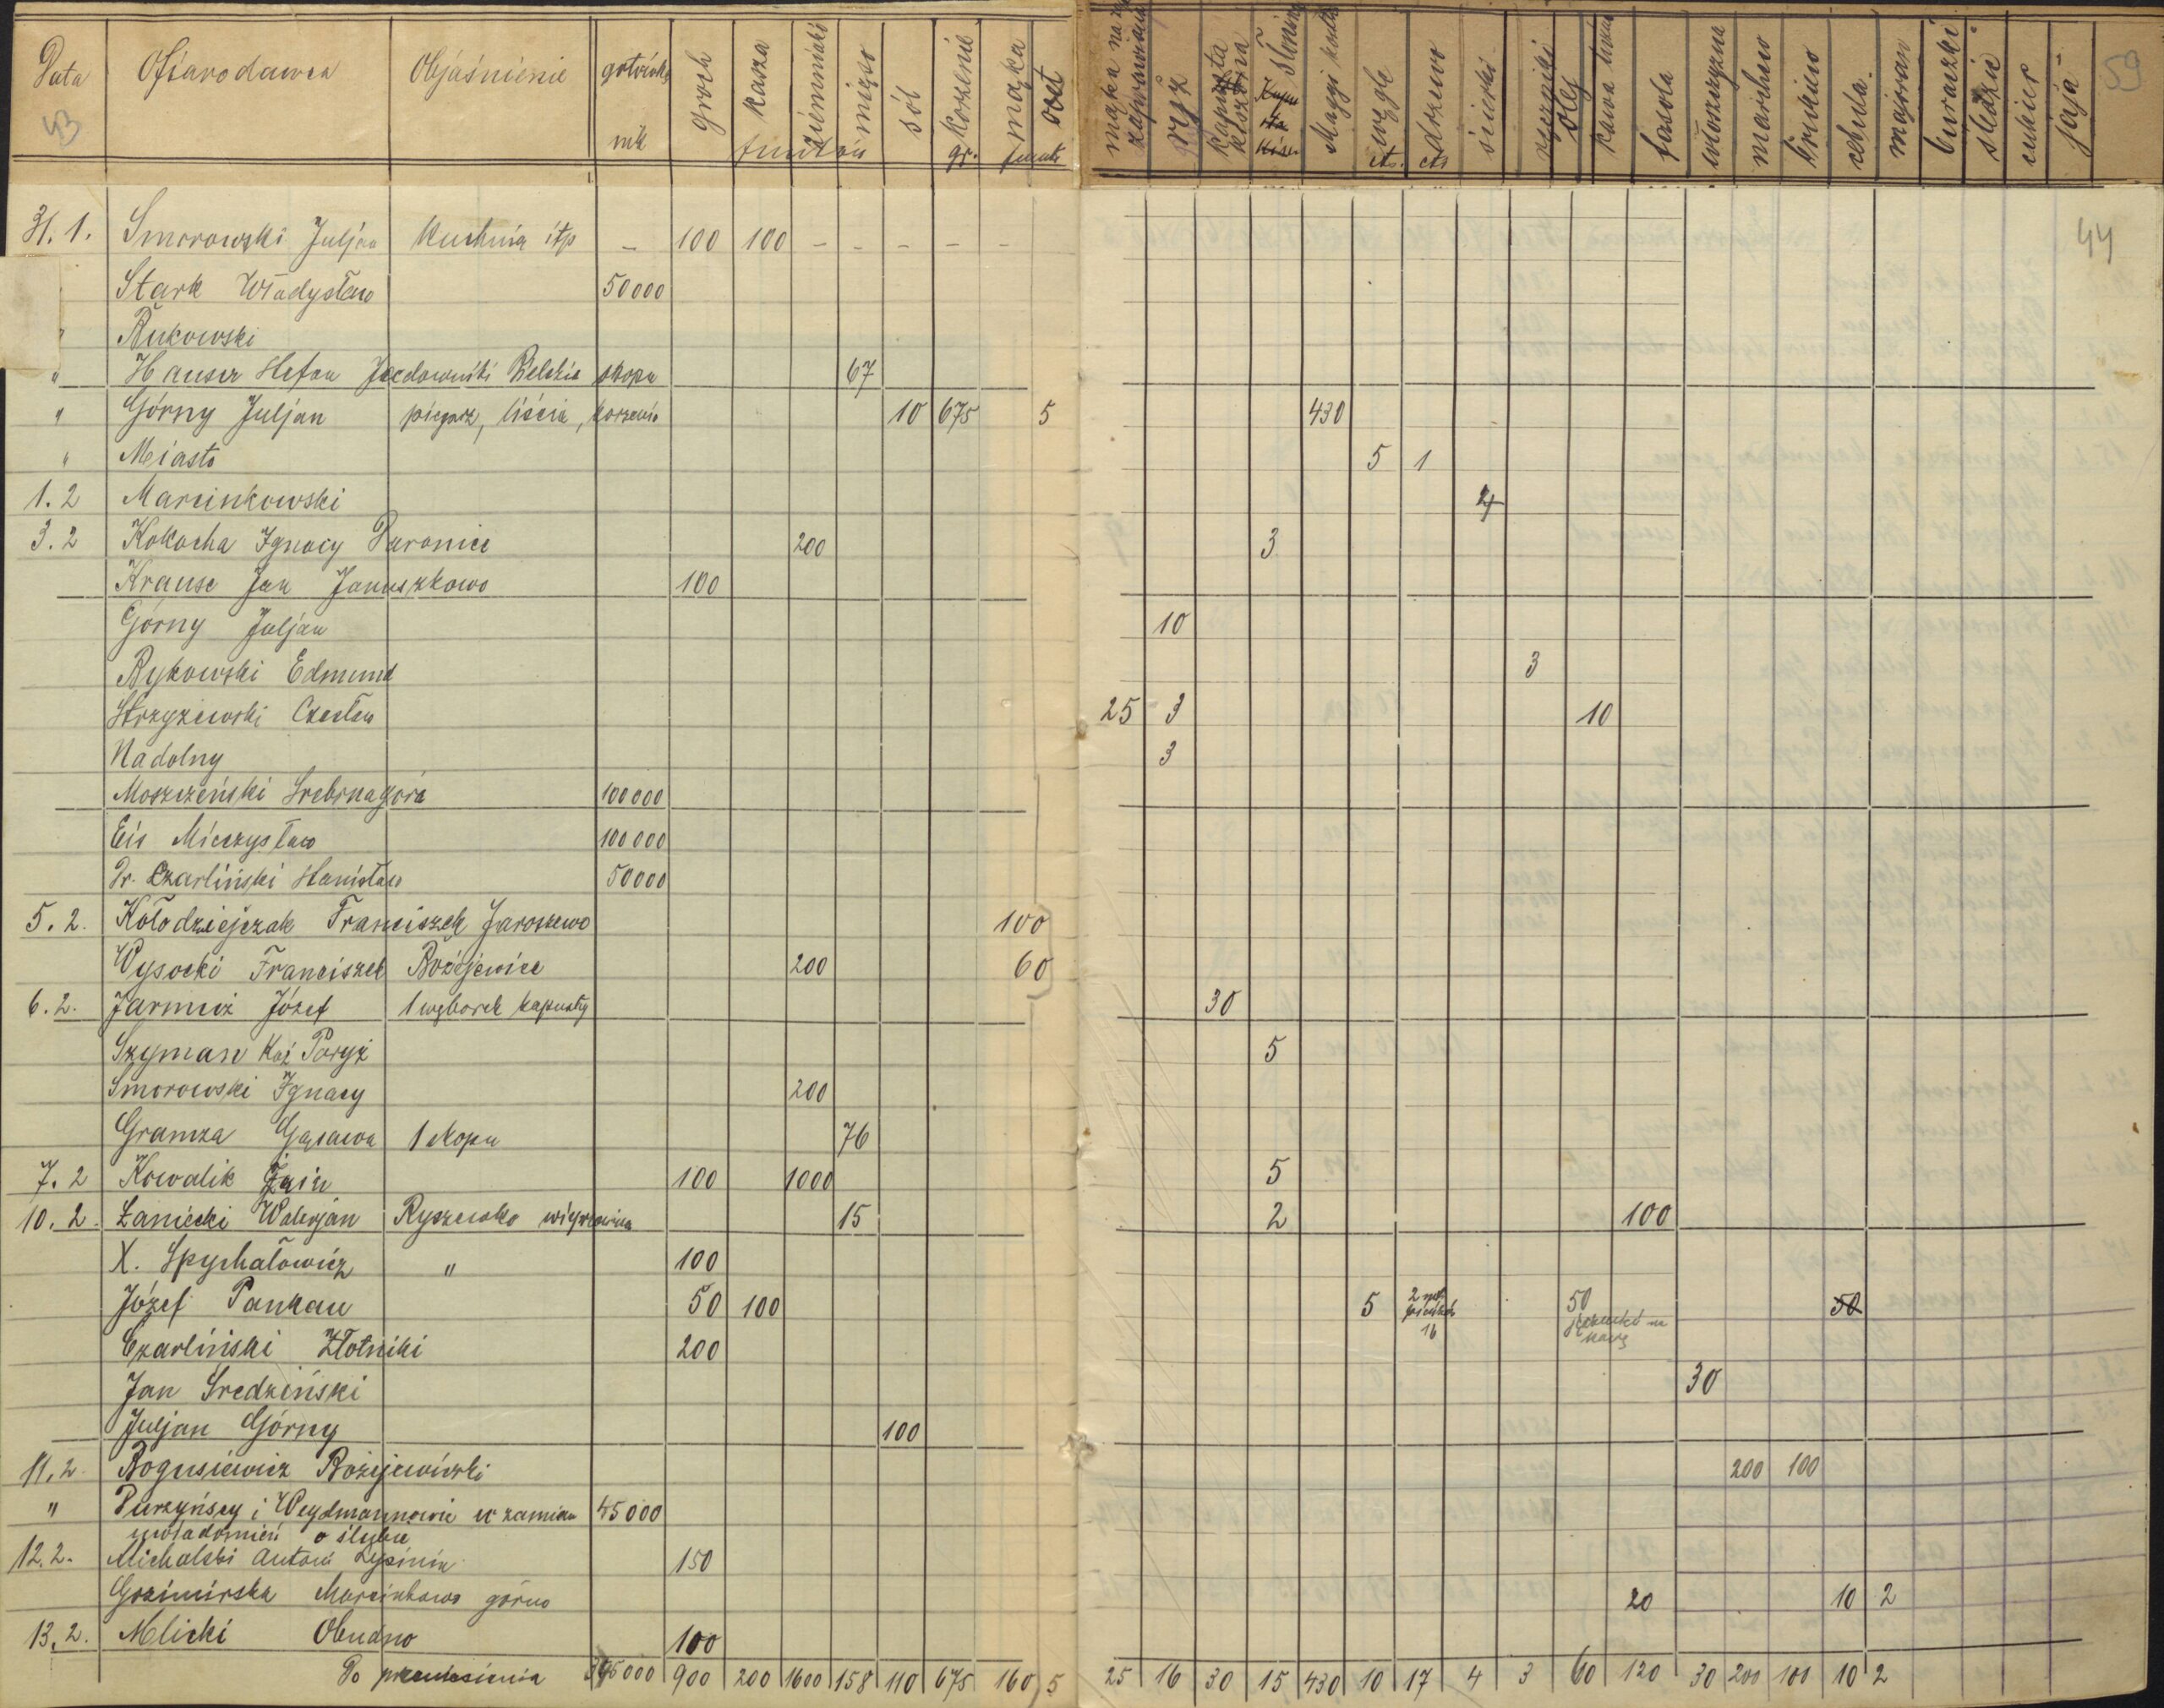 Data Ofiarodawca Objaśnienie gotówka mk groch kasza ziemniaki mięso sól korzenie gr. mąka ocet funtów funt mąka na zaprawianie ryż kapusta kiszona słonina Maggi węgle ct. drzewo ct. siekierki olej kawa fasola włoszczyzna marchew brukiew cebula. majran buraczki śledzie cukier jaja 59
43
31. 1. Smorowski Juljan kuchnia itp – 100 100 – – – – – 44
Stark Władysław 50000
" Bukowski
" Hauser Stefan Bielskie skopu 67
" Górny Juljan pieprz, liście, korzenie 10 675 5 430
" Miasto 5 1
1. 2 Marcinkowski 4
3. 2 Kokocha Ignacy 200 3
Krause Jan Januszkowo 100
Górny Juljan 10
Rykowski Edmund 3
Strzyżewski Czesław 25 3 10
Nadolny 3
Moszczeński Srebrnagóra 100000
Eis Mieczysław 100000
Dr. Czarliński Stanisław 50000
5. 2. Kołodziejczak Franciszek Jaroszewo 100
Wysocki Franciszek Bożejewice 200 60
6. 2. Jarmuż Józef 1 węborek kapusty 30
Szyman Kaź Paryż 5
Smorowski Ignacy 200
Gramza Gąsawa 1 skopu 76
7. 2 Kowalik Żnin 100 1000 5
10. 2. Łaniecki Walerjan Ryszewko wieprzowina 15 2 100
X. Spychałowicz " 100
Józef Pankau 50 100 5 2 16 50 50
Czarliński Złotniki 200
Jan Średziński 30
Juljan Górny 100
11. 2. Bogusiewicz Bożejewiczki 200 100
" Purzyńscy i Weydmannowie w zamian 45000
uwiadomień o ślubie
12. 2. Michalski Antoni 150
Gozimirska Marcinkowo górne 20 10 2
13. 2. Mlicki Obudno 100
Do przeniesienia 345000 900 200 1600 158 110 675 160 5 25 16 30 15 430 10 17 4 3 60 120 30 200 100 10 2